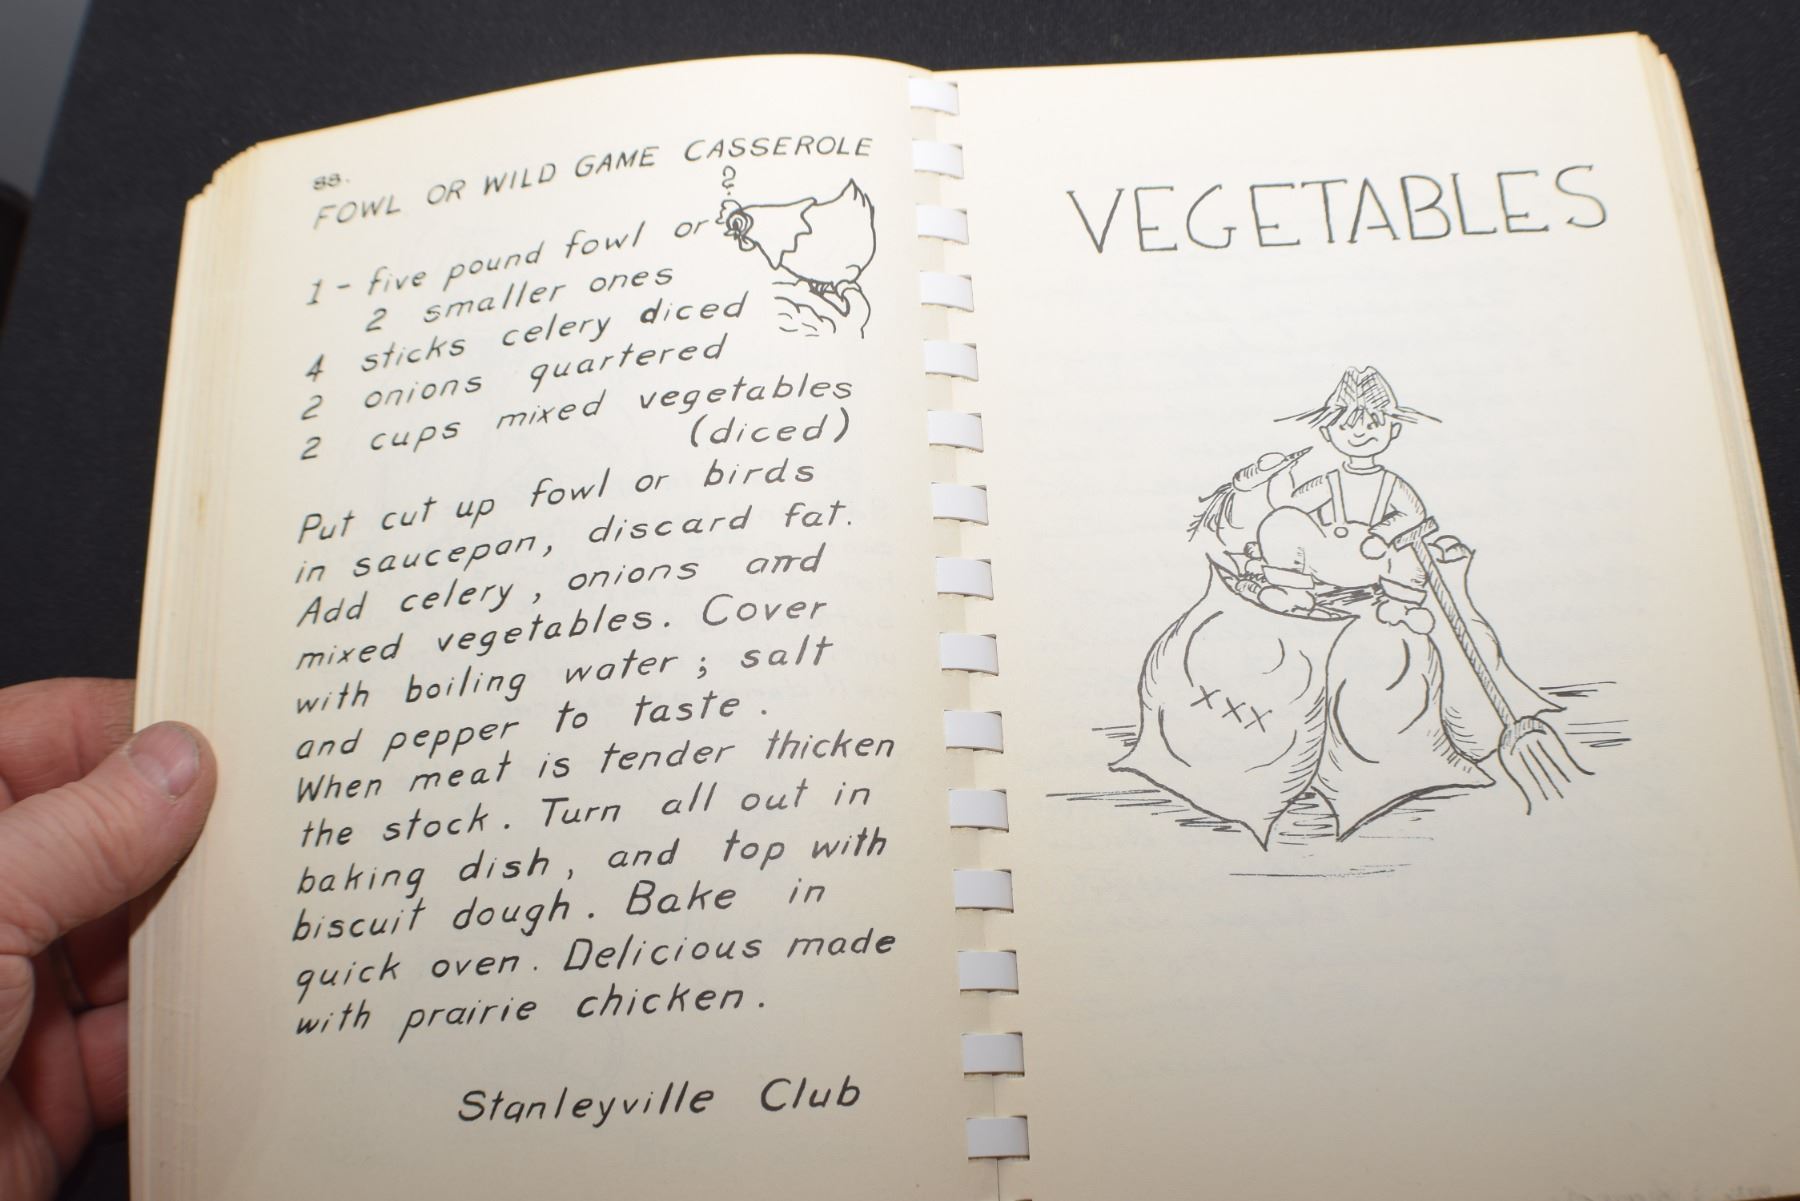 88.
FOWL OR WILD GAME CASSEROLE
?
1 - five pound fowl or
2 smaller ones
4 sticks celery diced
2 onions quartered
2 cups mixed vegetables
(diced)
Put cut up fowl or birds
in saucepan, discard fat.
Add celery, onions and
mixed vegetables. Cover
with boiling water; salt
and pepper to taste.
When meat is tender thicken
the stock. Turn all out in
baking dish, and top with
biscuit dough. Bake in
quick oven. Delicious made
with prairie chicken.
Stanleyville Club
VEGETABLES
XXX